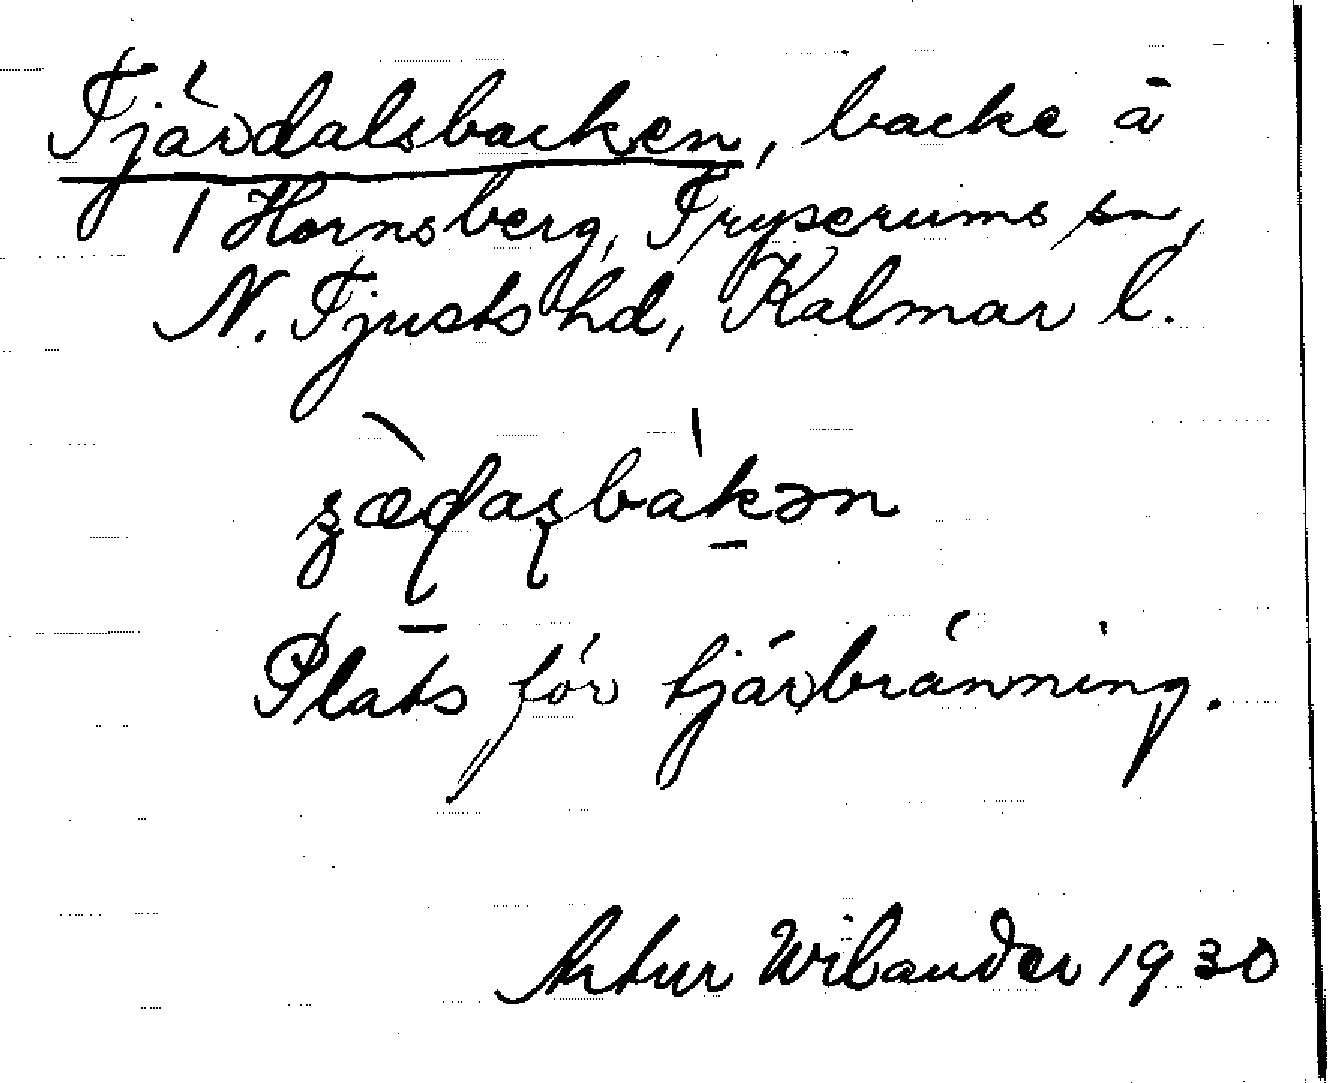 Tjärdalsbacken, backe å
1 Hornsberg, Tryserums sn,
N. Tjusts hd, Kalmar l.
Plats för tjärbränning.
Artur Wilander 1930